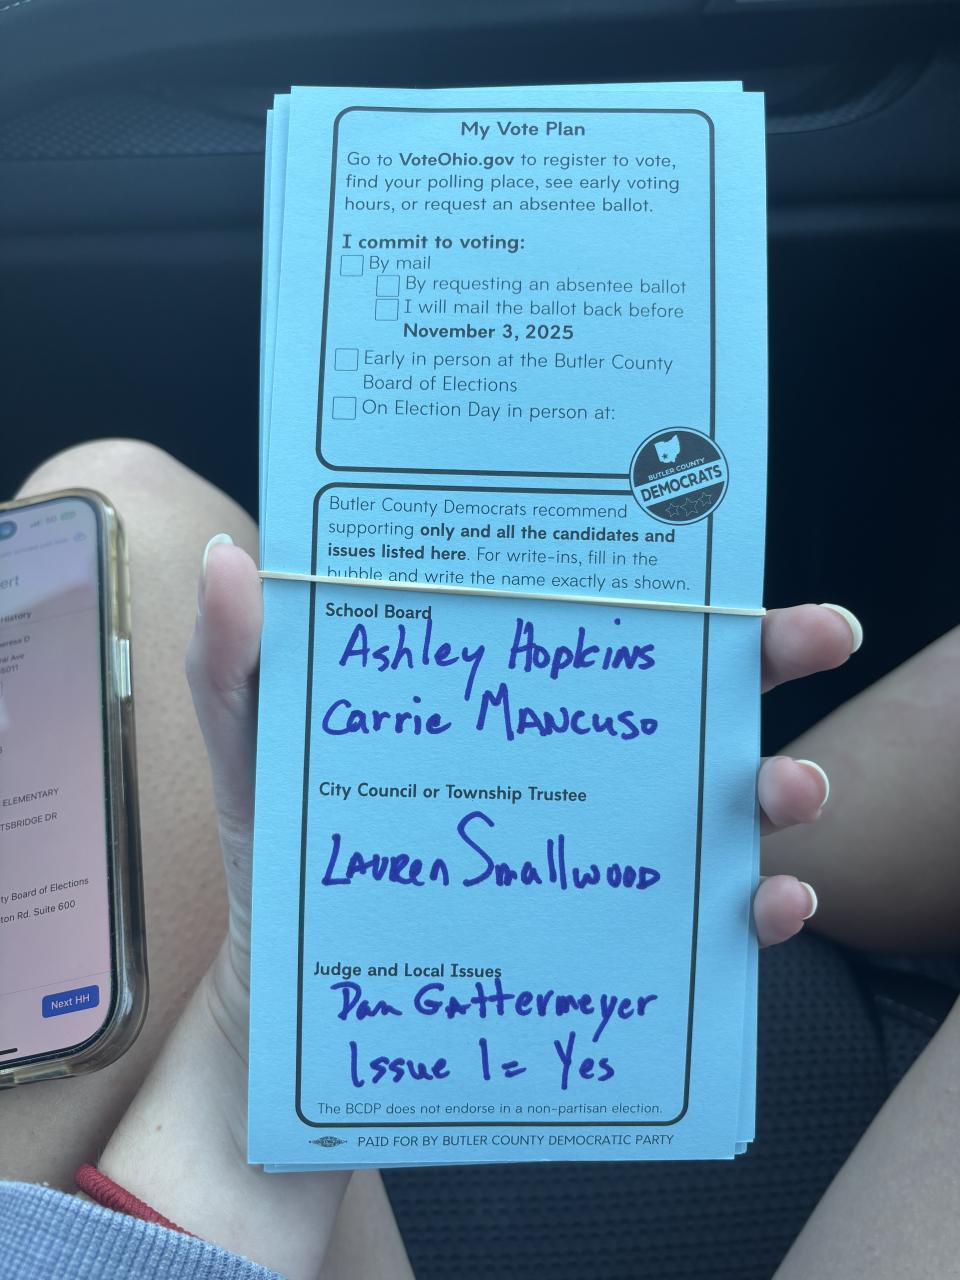 My Vote Plan
Go to VoteOhio.gov to register to vote,
find your polling place, see early voting
hours, or request an absentee ballot.
I commit to voting:
By mail
By requesting an absentee ballot
I will mail the ballot back before
November 3, 2025
Early in person at the Butler County
Board of Elections
On Election Day in person at:
BUTLER COUNTY
DEMOCRATS
Butler County Democrats recommend
supporting only and all the candidates and
issues listed here. For write-ins, fill in the
bubble and write the name exactly as shown.
School Board
Ashley Hopkins
Carrie Mancuso
City Council or Township Trustee
Lauren Smallwood
Judge and Local Issues
Dan Gattermeyer
Issue 1= Yes
The BCDP does not endorse in a non-partisan election.
PAID FOR BY BUTLER COUNTY DEMOCRATIC PARTY
ert
History
eresa D
ral Ave
5011
ELEMENTARY
TSBRIDGE DR
ty Board of Elections
ton Rd. Suite 600
Next HH